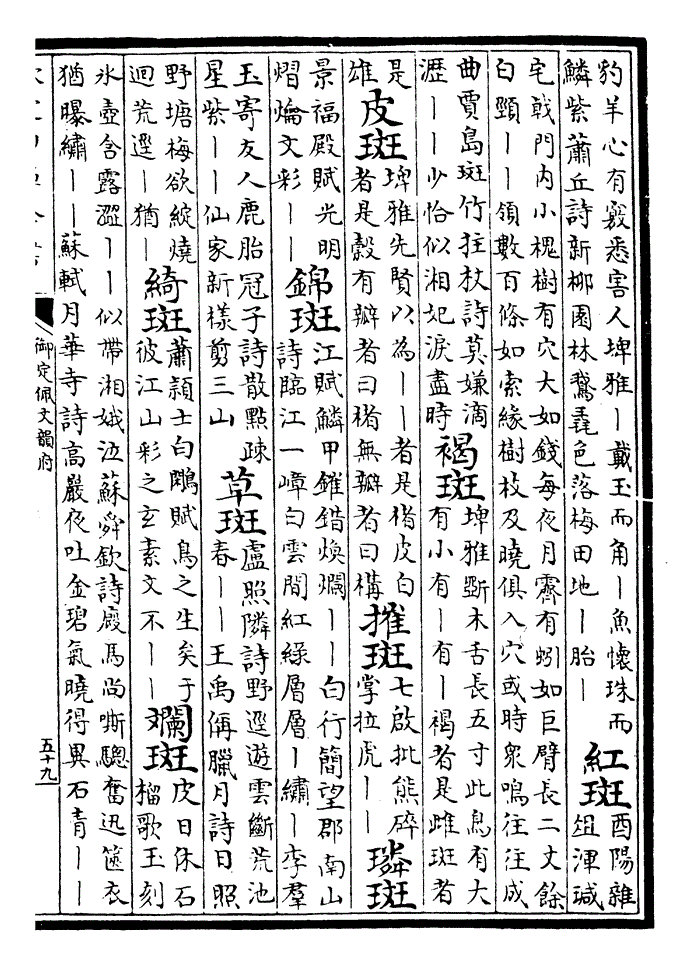 豹羊心有竅悉害人埤雅丨戴玉而角丨魚懷珠而
鱗紫蕭丘詩新柳園林鵞毳色落梅田地丨胎丨
紅斑
酉陽雜
俎渾瑊
宅戟門内小槐樹有穴大如錢每夜月霽有蚓如巨臂長二丈餘
白頸丨丨領數百條如索緣樹枝及曉俱入穴或時衆鳴往往成
曲賈島斑竹拄杖詩莫嫌滴
瀝丨丨少恰似湘妃淚盡時
褐斑
埤雅斲木舌長五寸此鳥有大
有小有丨有丨褐者是雌斑者
是
雄
皮斑
埤雅先賢以為丨丨者是楮皮白
者是穀有瓣者曰楮無瓣者曰構
摧斑
七啟批熊碎
掌拉虎丨丨
璘斑
景福殿賦光明
熠爚文彩丨丨
錦斑
江賦鱗甲錐錯煥爛丨丨白行簡望郡南山
詩臨江一嶂白雲間紅綠層層丨繡丨李羣
玉寄友人鹿胎冠子詩散點疎
星紫丨丨仙家新樣剪三山
草斑
盧照隣詩野逕遊雲斷荒池
春丨丨王禹偁臘月詩日照
野塘梅欲綻燒
迴荒逕丨猶丨
綺斑
蕭頴士白鷴賦鳥之生矣于
彼江山彩之玄素文不丨丨
斕斑
皮日休石
榴歌玉刻
氷壺含露澀丨丨似帶湘娥泣蘇舜欽詩廄馬尚嘶驄奮迅篋衣
猶曝繡丨丨蘇軾月華寺詩高巖夜吐金碧氣曉得異石青丨丨
御定佩文韻府
五十九